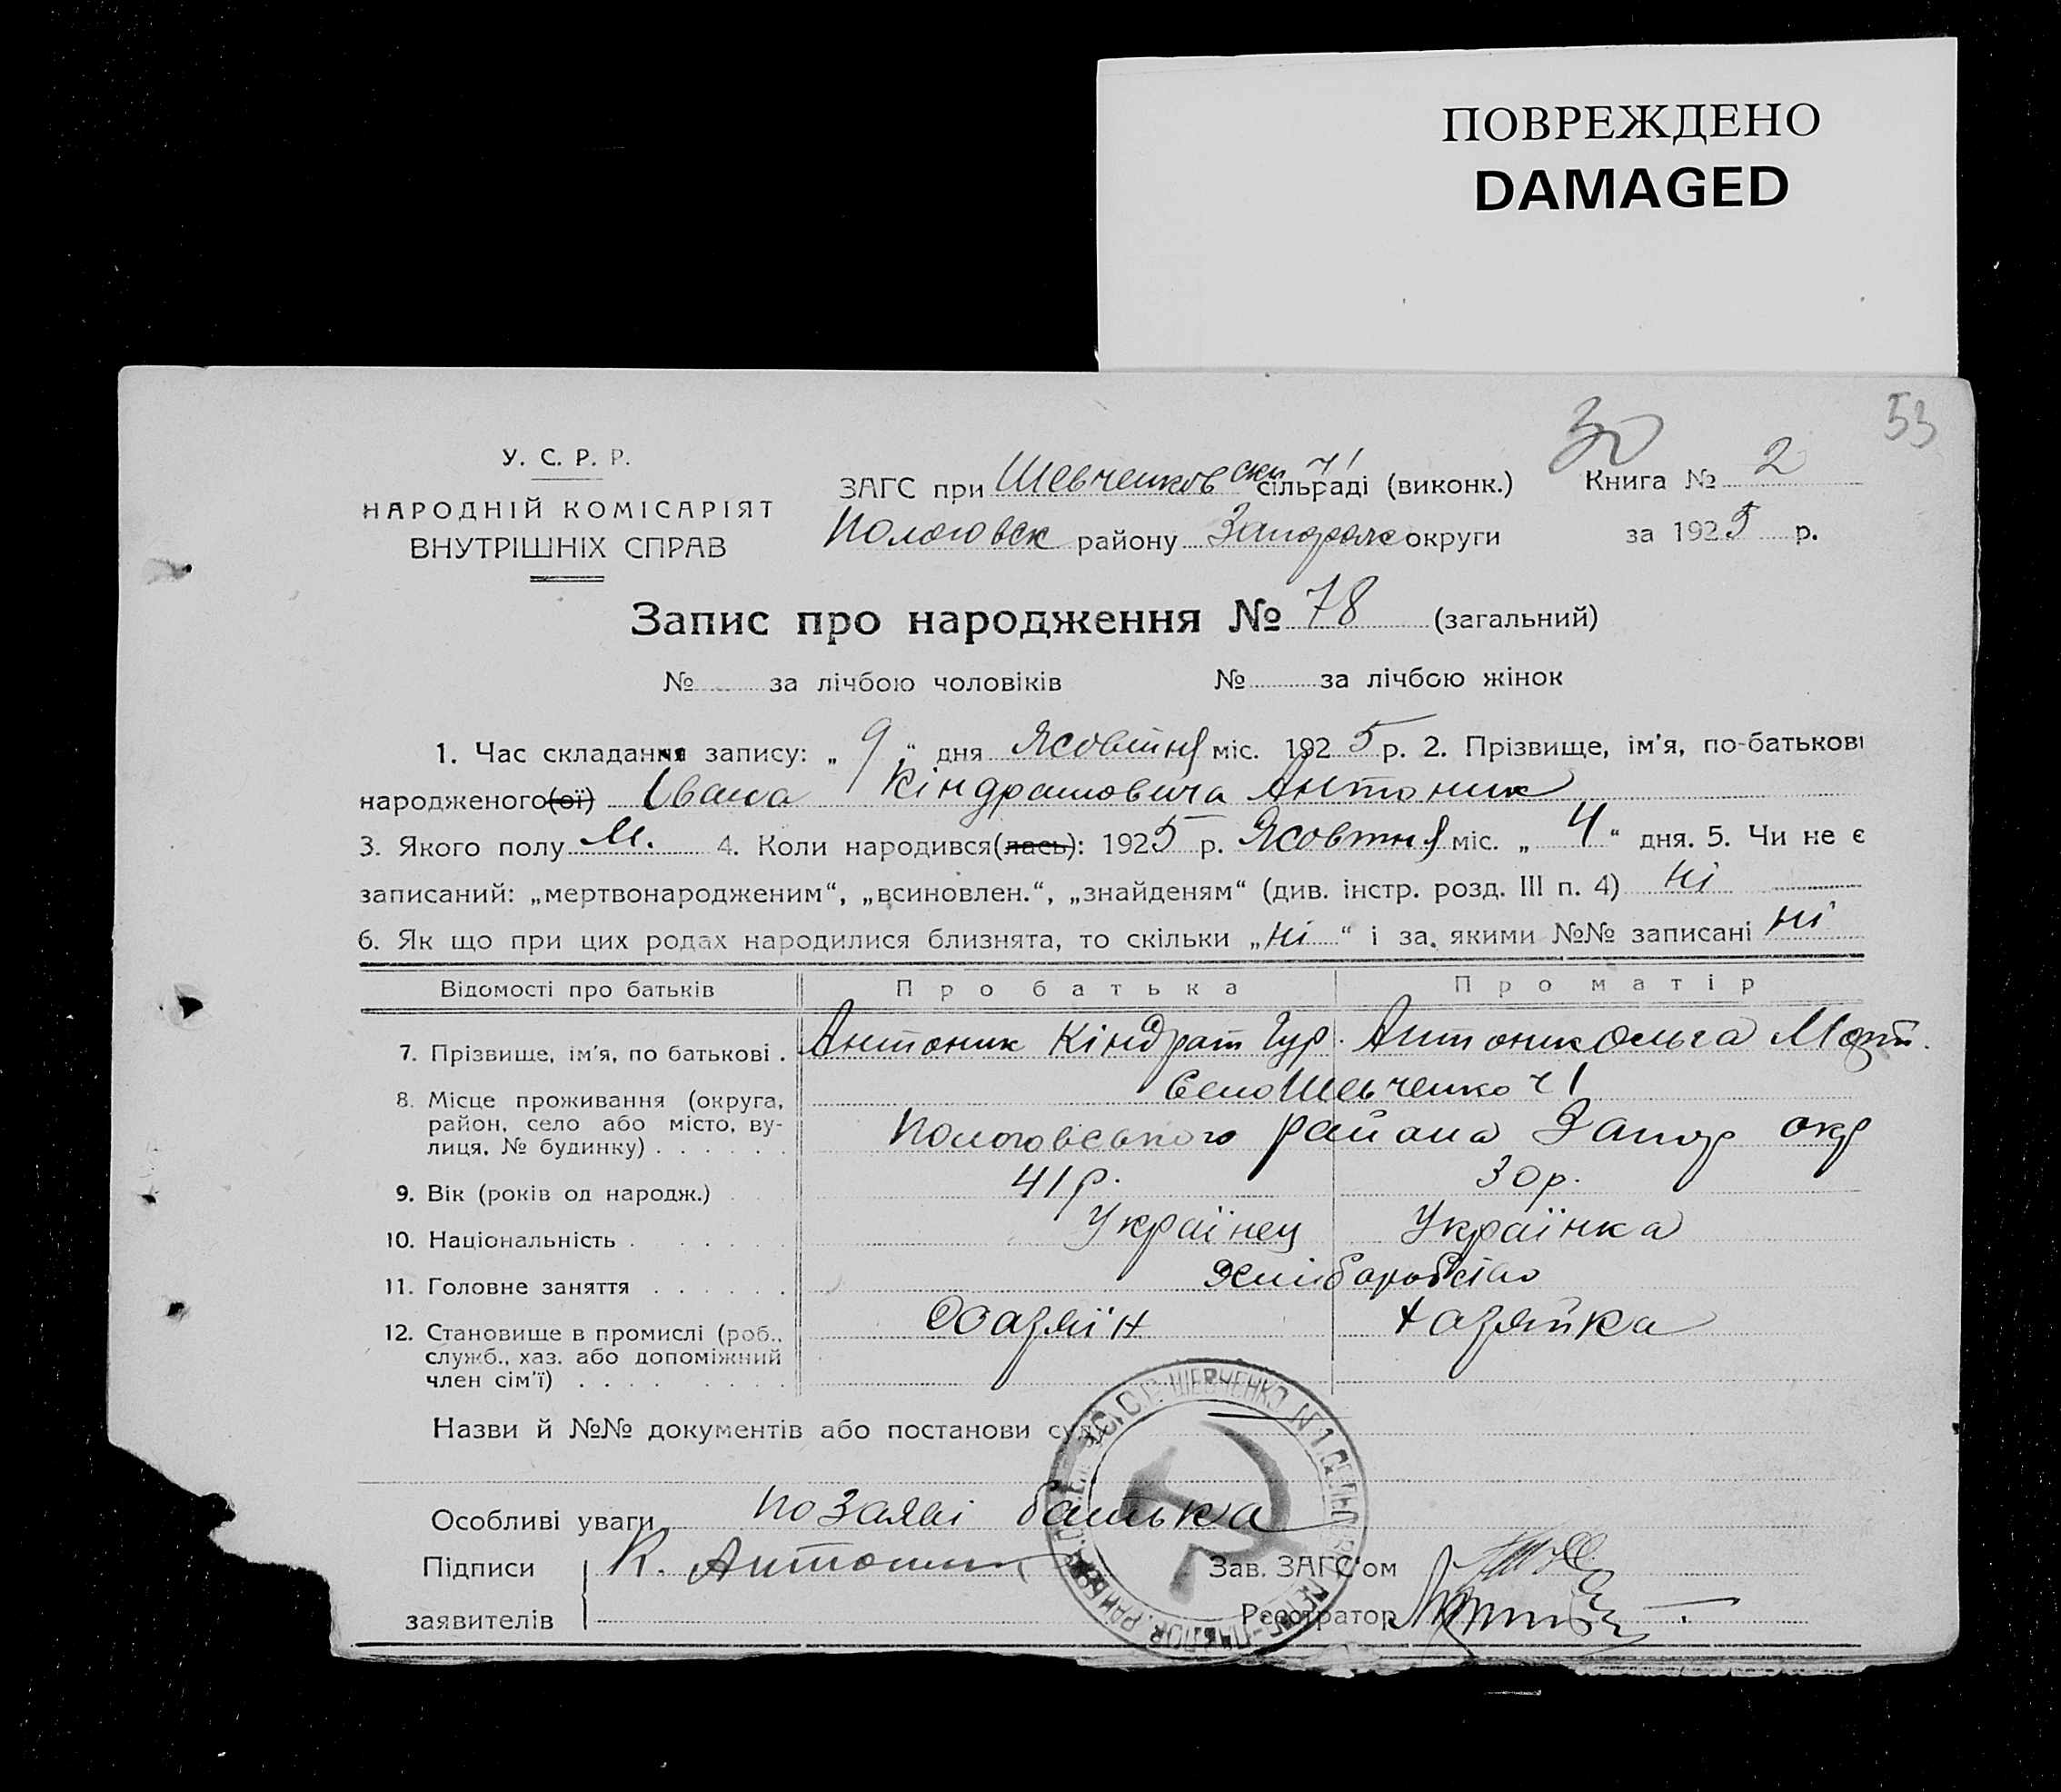 ПОВРЕЖДЕНО
DAMAGED
30
53
У. С. Р. Р.
НАРОДНІЙ КОМІСАРІЯТ
ВНУТРІШНІХ СПРАВ
ЗАГС при Шевченковски ч1 сільраді (виконк.) Книга № 2
Пологовск району Запорож округи за 1925 р.
Запис про народження № 78 (загальний)
№ за лічбою чоловіків № за лічбою жінок
1. Час складання запису: „ 9 “ дня Жовтня міс. 1925 р. 2. Прізвище, ім'я, по-батькові
народженого(ої) Івана Кіндратовича Антоник
3. Якого полу М. 4. Коли народився(лась): 1925 р. Жовтня міс. „ 4 “ дня. 5. Чи не є
записаний: „мертвонародженим“, „всиновлен.“, „знайденям“ (див. інстр. розд. III п. 4) ні
6. Як що при цих родах народилися близнята, то скільки „ ні “ і за якими №№ записані ні
Відомості про батьків Про батька Про матір
7. Прізвище, ім'я, по батькові . Антоник Кіндрат Гур. Антоник Ольга Март.
8. Місце проживання (округа, Село Шевченко ч1
район, село або місто, ву-
лиця, № будинку) . . . . . . Пологовського района Запор окр
9. Вік (років од народж.) 41р. 30р.
10. Національність . . . . Українец Українка
11. Головне заняття . . . . . . Хліборобство
12. Становище в промислі (роб., Хазяїн Хазяйка
служб., хаз. або допоміжний
член сім'ї) . . . . . . . . .
Назви й №№ документів або постанови суду
Особливі уваги по заяві батька
Підписи К. Антоник Зав. ЗАГС'ом
заявителів Реєстратор
ШЕВЧЕНКО N1